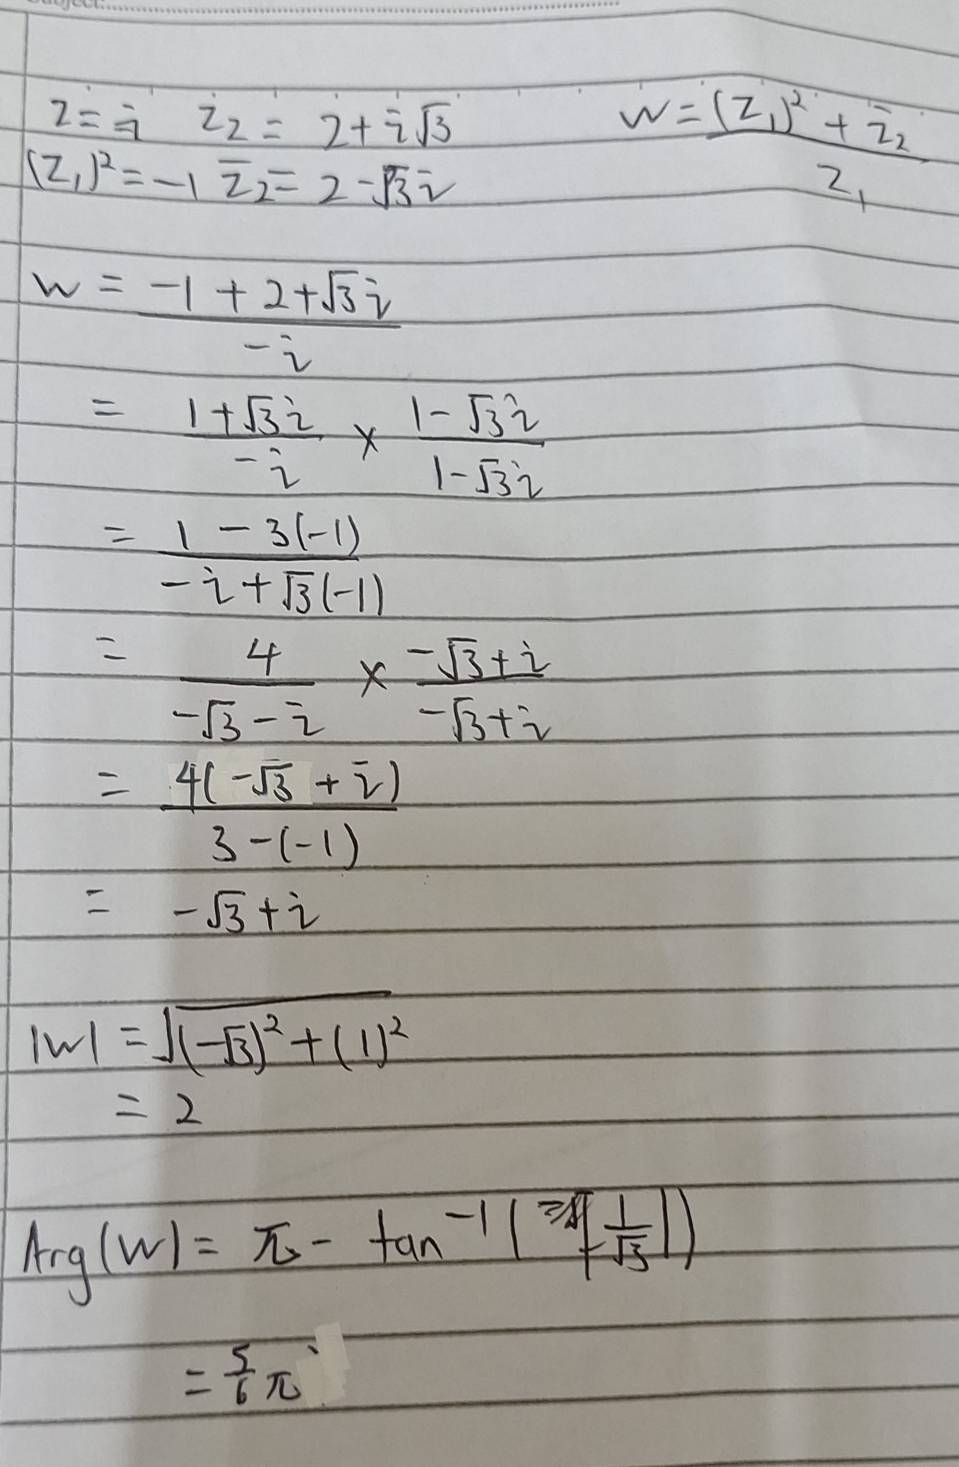 z = -i z₂ = 2 + i√3 w = ((z₁)² + z̄₂)/z₁
(z₁)² = -1 z̄₂ = 2 - √3i
w = (-1 + 2 + √3i)/(-i)
= (1 + √3i)/(-i) × (1 - √3i)/(1 - √3i)
= (1 - 3(-1))/(-i + √3(-1))
= 4/(-√3 - i) × (-√3 + i)/(-√3 + i)
= 4(-√3 + i)/(3 - (-1))
= -√3 + i
|w| = √((-√3)² + (1)²
= 2
Arg(w) = π - tan⁻¹(|1/√3|)
= 5/6 π